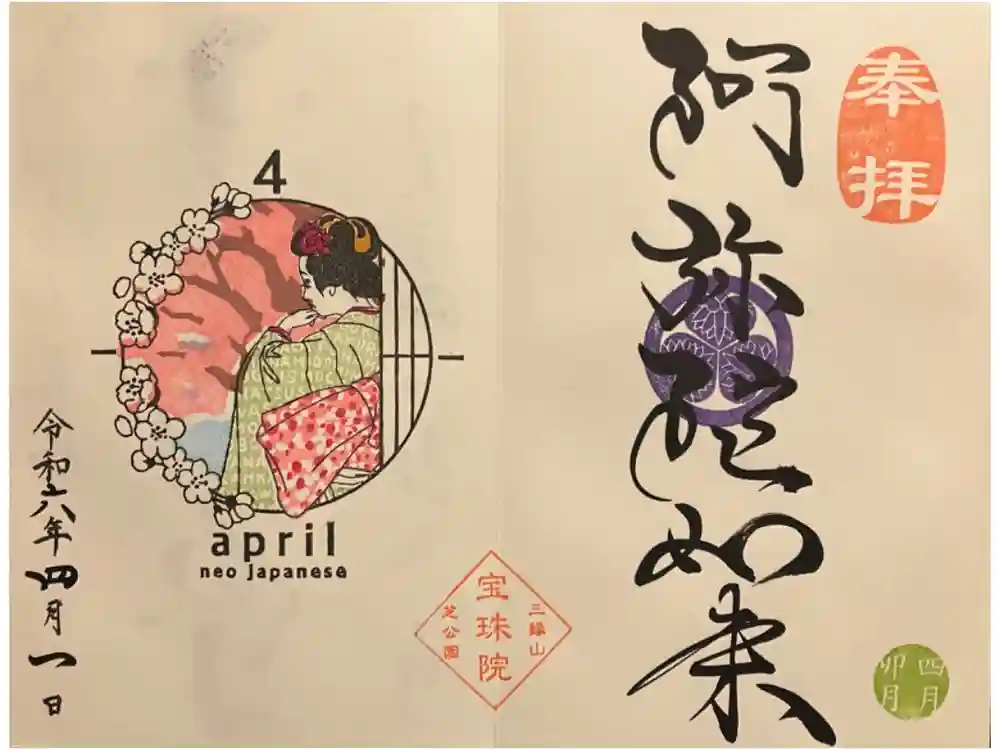 奉拝
阿弥陀如来
四月
卯月
三縁山
宝珠院
芝公園
4
april
neo japanese
令和六年四月一日